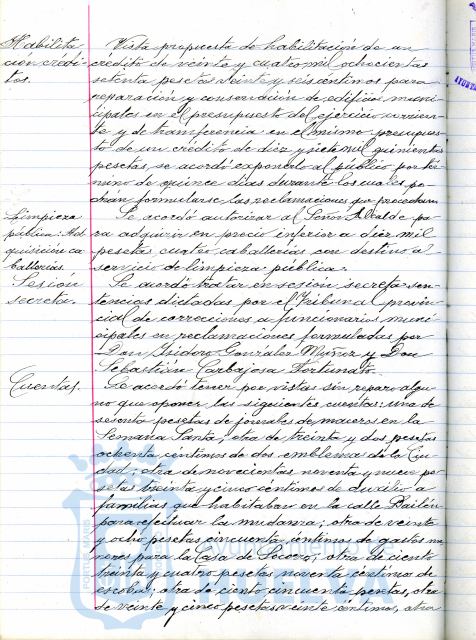 Habilita
ción crédi-
tos.
Vista propuesta de habilitación de un
crédito de veinte y cuatro mil ochocientas
setenta pesetas veinte y seis centimos para
reparación y conservación de edificios muni
cipales en el presupuesto del ejercicio corrien
te y de transferencia en el mismo presupues
to de un crédito de diez y siete mil quinientas
pesetas, se acordó exponerlo al público por tér
mino de quince dias durante los cuales po-
dran formularse las reclamaciones que procedan
Limpieza
pública. Ad
quisición ca
ballerias.
Se acordó autorizar al Señor Alcalde pa
ra adquirir en precio inferior a diez mil
pesetas cuatro caballerias con destino al
servicio de limpieza pública.
Sesión
secreta.
Se acordó tratar en sesión secreta sen-
tencias dictadas por el Tribunal provin
cial de correcciones a funcionarios muni
cipales en reclamaciones formuladas por
Don Isidoro Gonzalez Muñoz y Don
Sebastián Carbajosa Fortunato.
Cuentas.
Se acordó tener por vistas sin reparo algu
no que oponer, las siguientes cuentas: una de
sesenta pesetas de jornales de maceros en la
Semana Santa; otra de treinta y dos pesetas
ochenta centimos de dos emblema de la Ciu
dad; otra de novecientas noventa y nueve pe
setas treinta y cinco centimos de auxilio a
familias que habitaban en la calle Bailén
para efectuar la mudanza; otra de veinte
y ocho pesetas cincuenta centimos de gastos me
nores para la Casa de Socorro; otra de ciento
treinta y cuatro pesetas noventa centimos de
escoba; otra de ciento cincuenta pesetas, otra
de veinte y cinco pesetas veinte centimos, otra